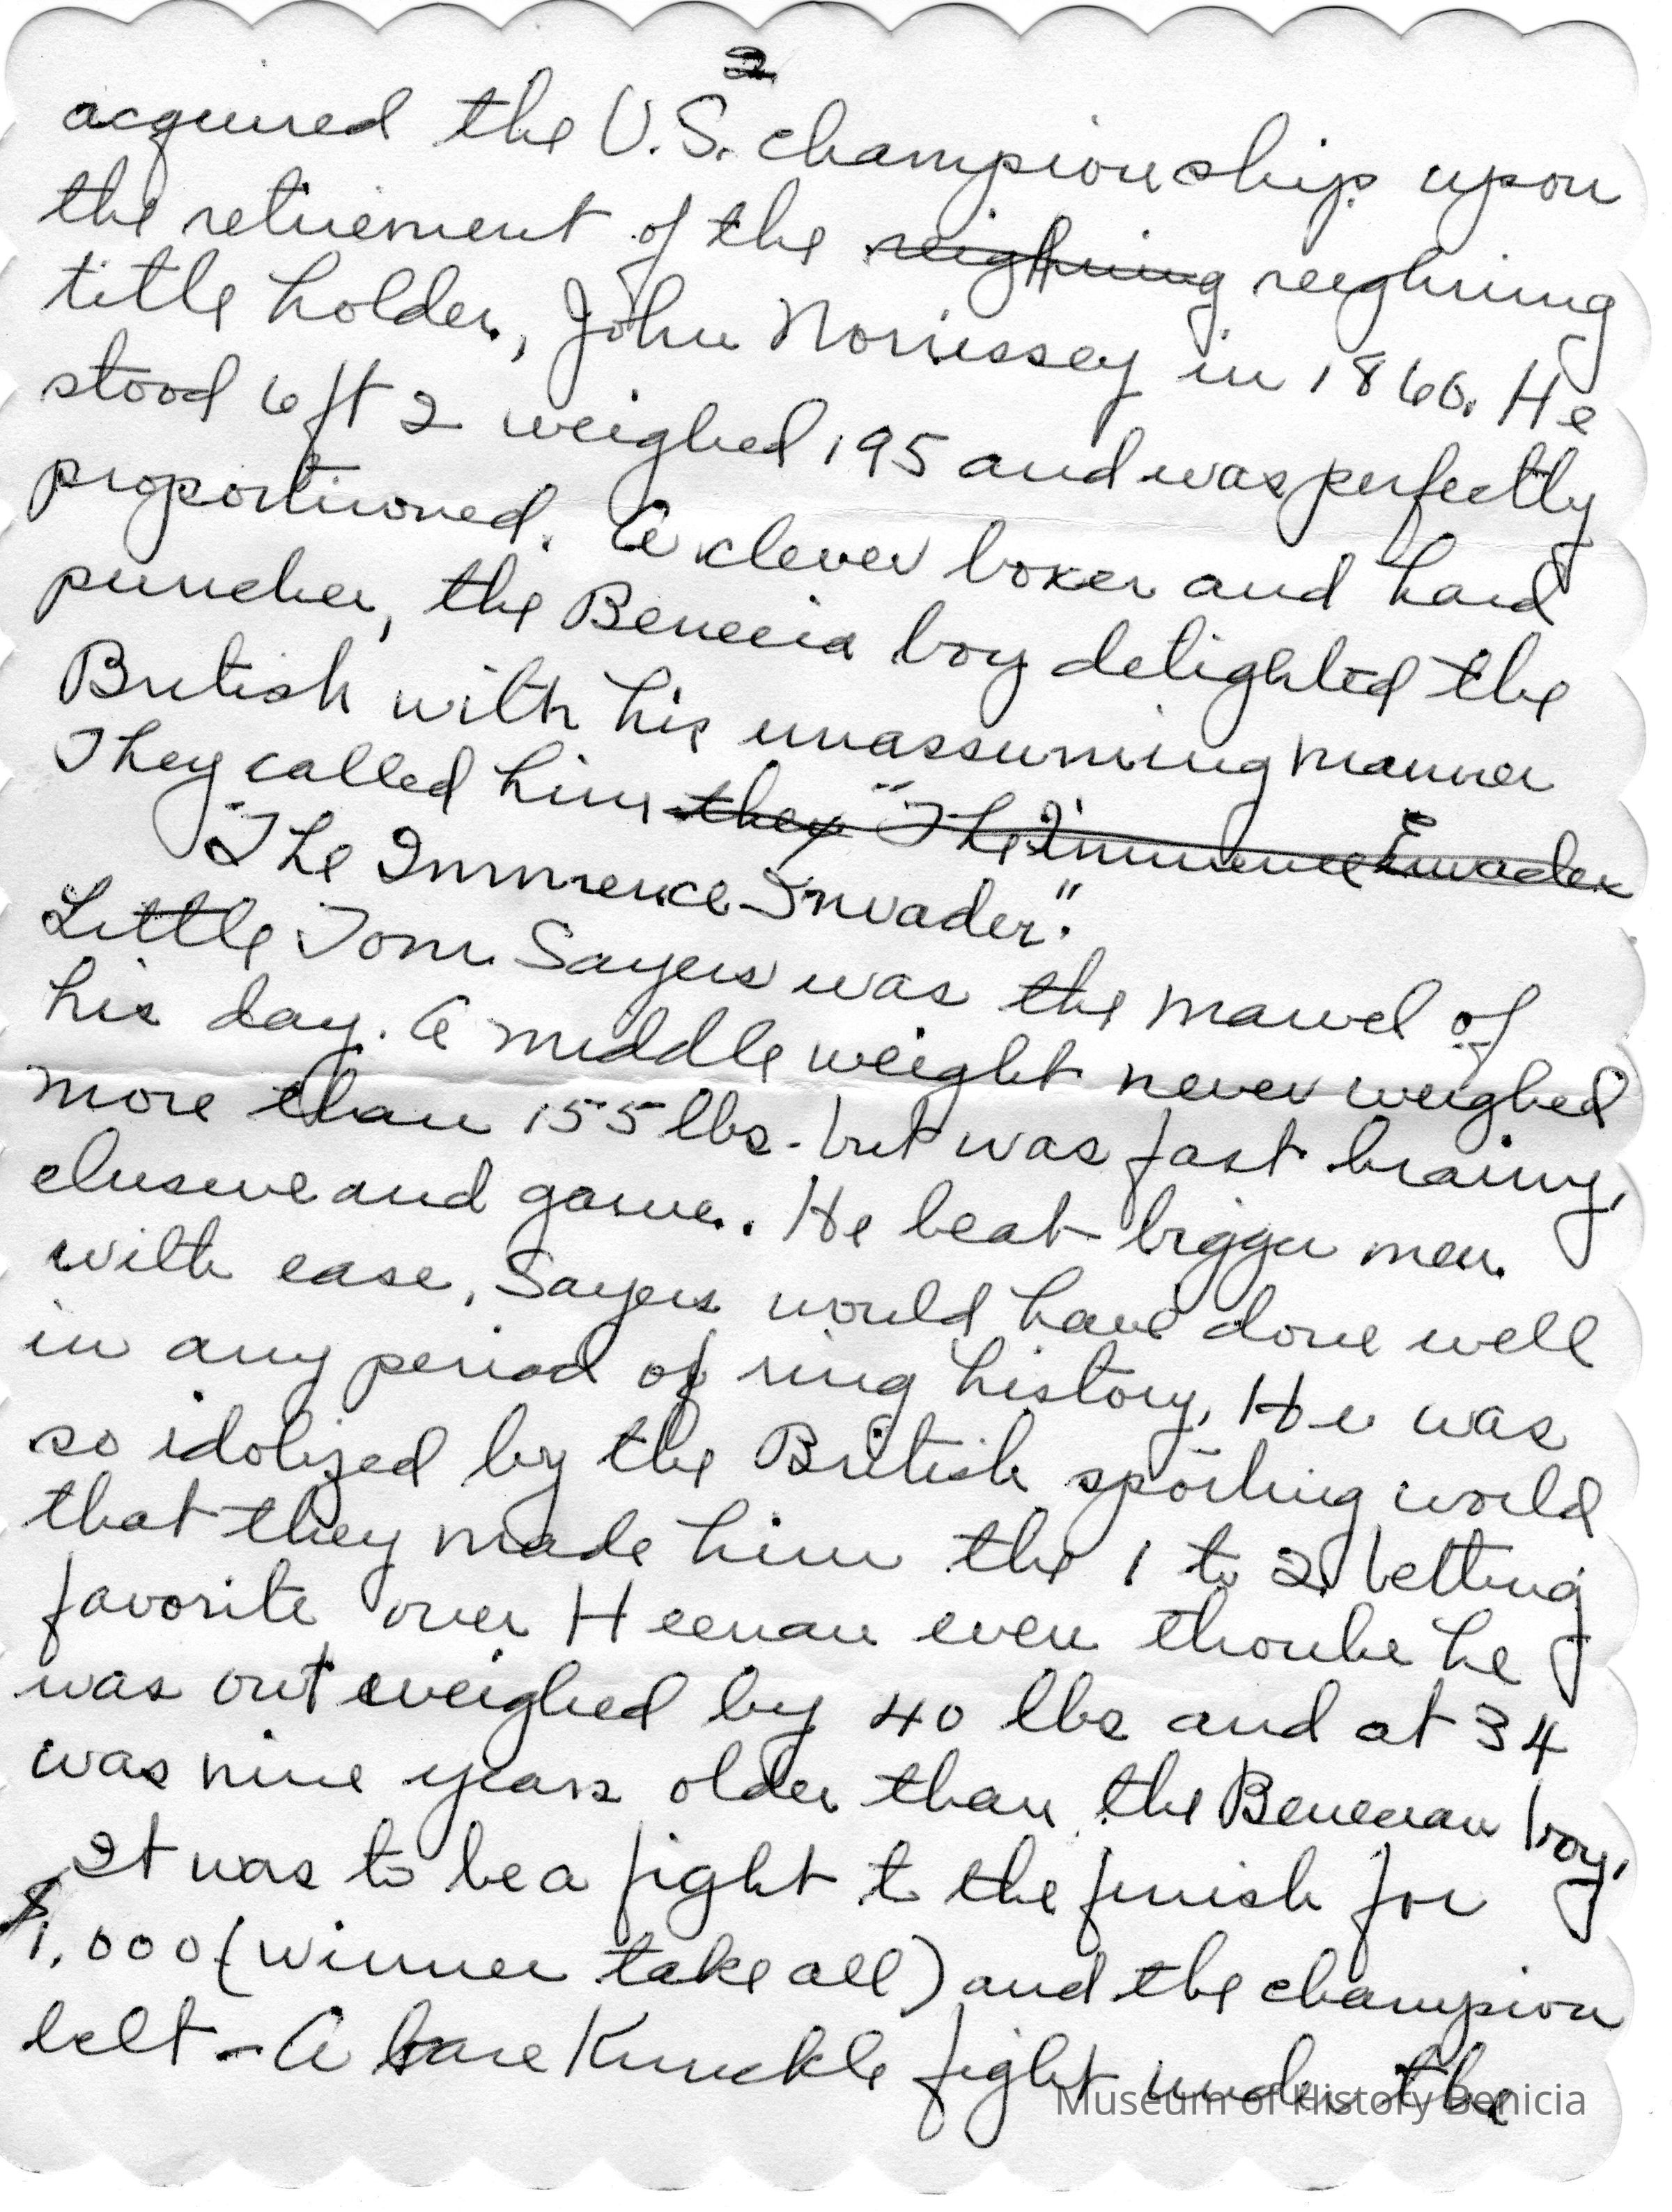 2
acquired the U.S. championship upon
the retirement of the reighning reighning
title holder, John Morrissey in 1860. He
stood 6 ft 2 weighed 195 and was perfectly
proportioned. A clever boxer and hard
puncher, the Benecia boy delighted the
British with his unassuming manner
They called him they "The Immence Invader
"The Immence Invader".
Little Tom Sayers was the marvel of
his day. A middle weight never weighed
more than 155 lbs. but was fast brainy,
elusive and game. He beat bigger men
with ease, Sayers would have done well
in any period of ring history, He was
so idolized by the British sporting world
that they made him the 1 to 2 betting
favorite over Heenan even thouhe he
was out weighed by 40 lbs and at 34
was nine years older than the Benecian boy.
It was to be a fight to the finish for
$1,000 (winner take all) and the champion
belt - A bare Knuckle fight under the
Museum of History Benicia